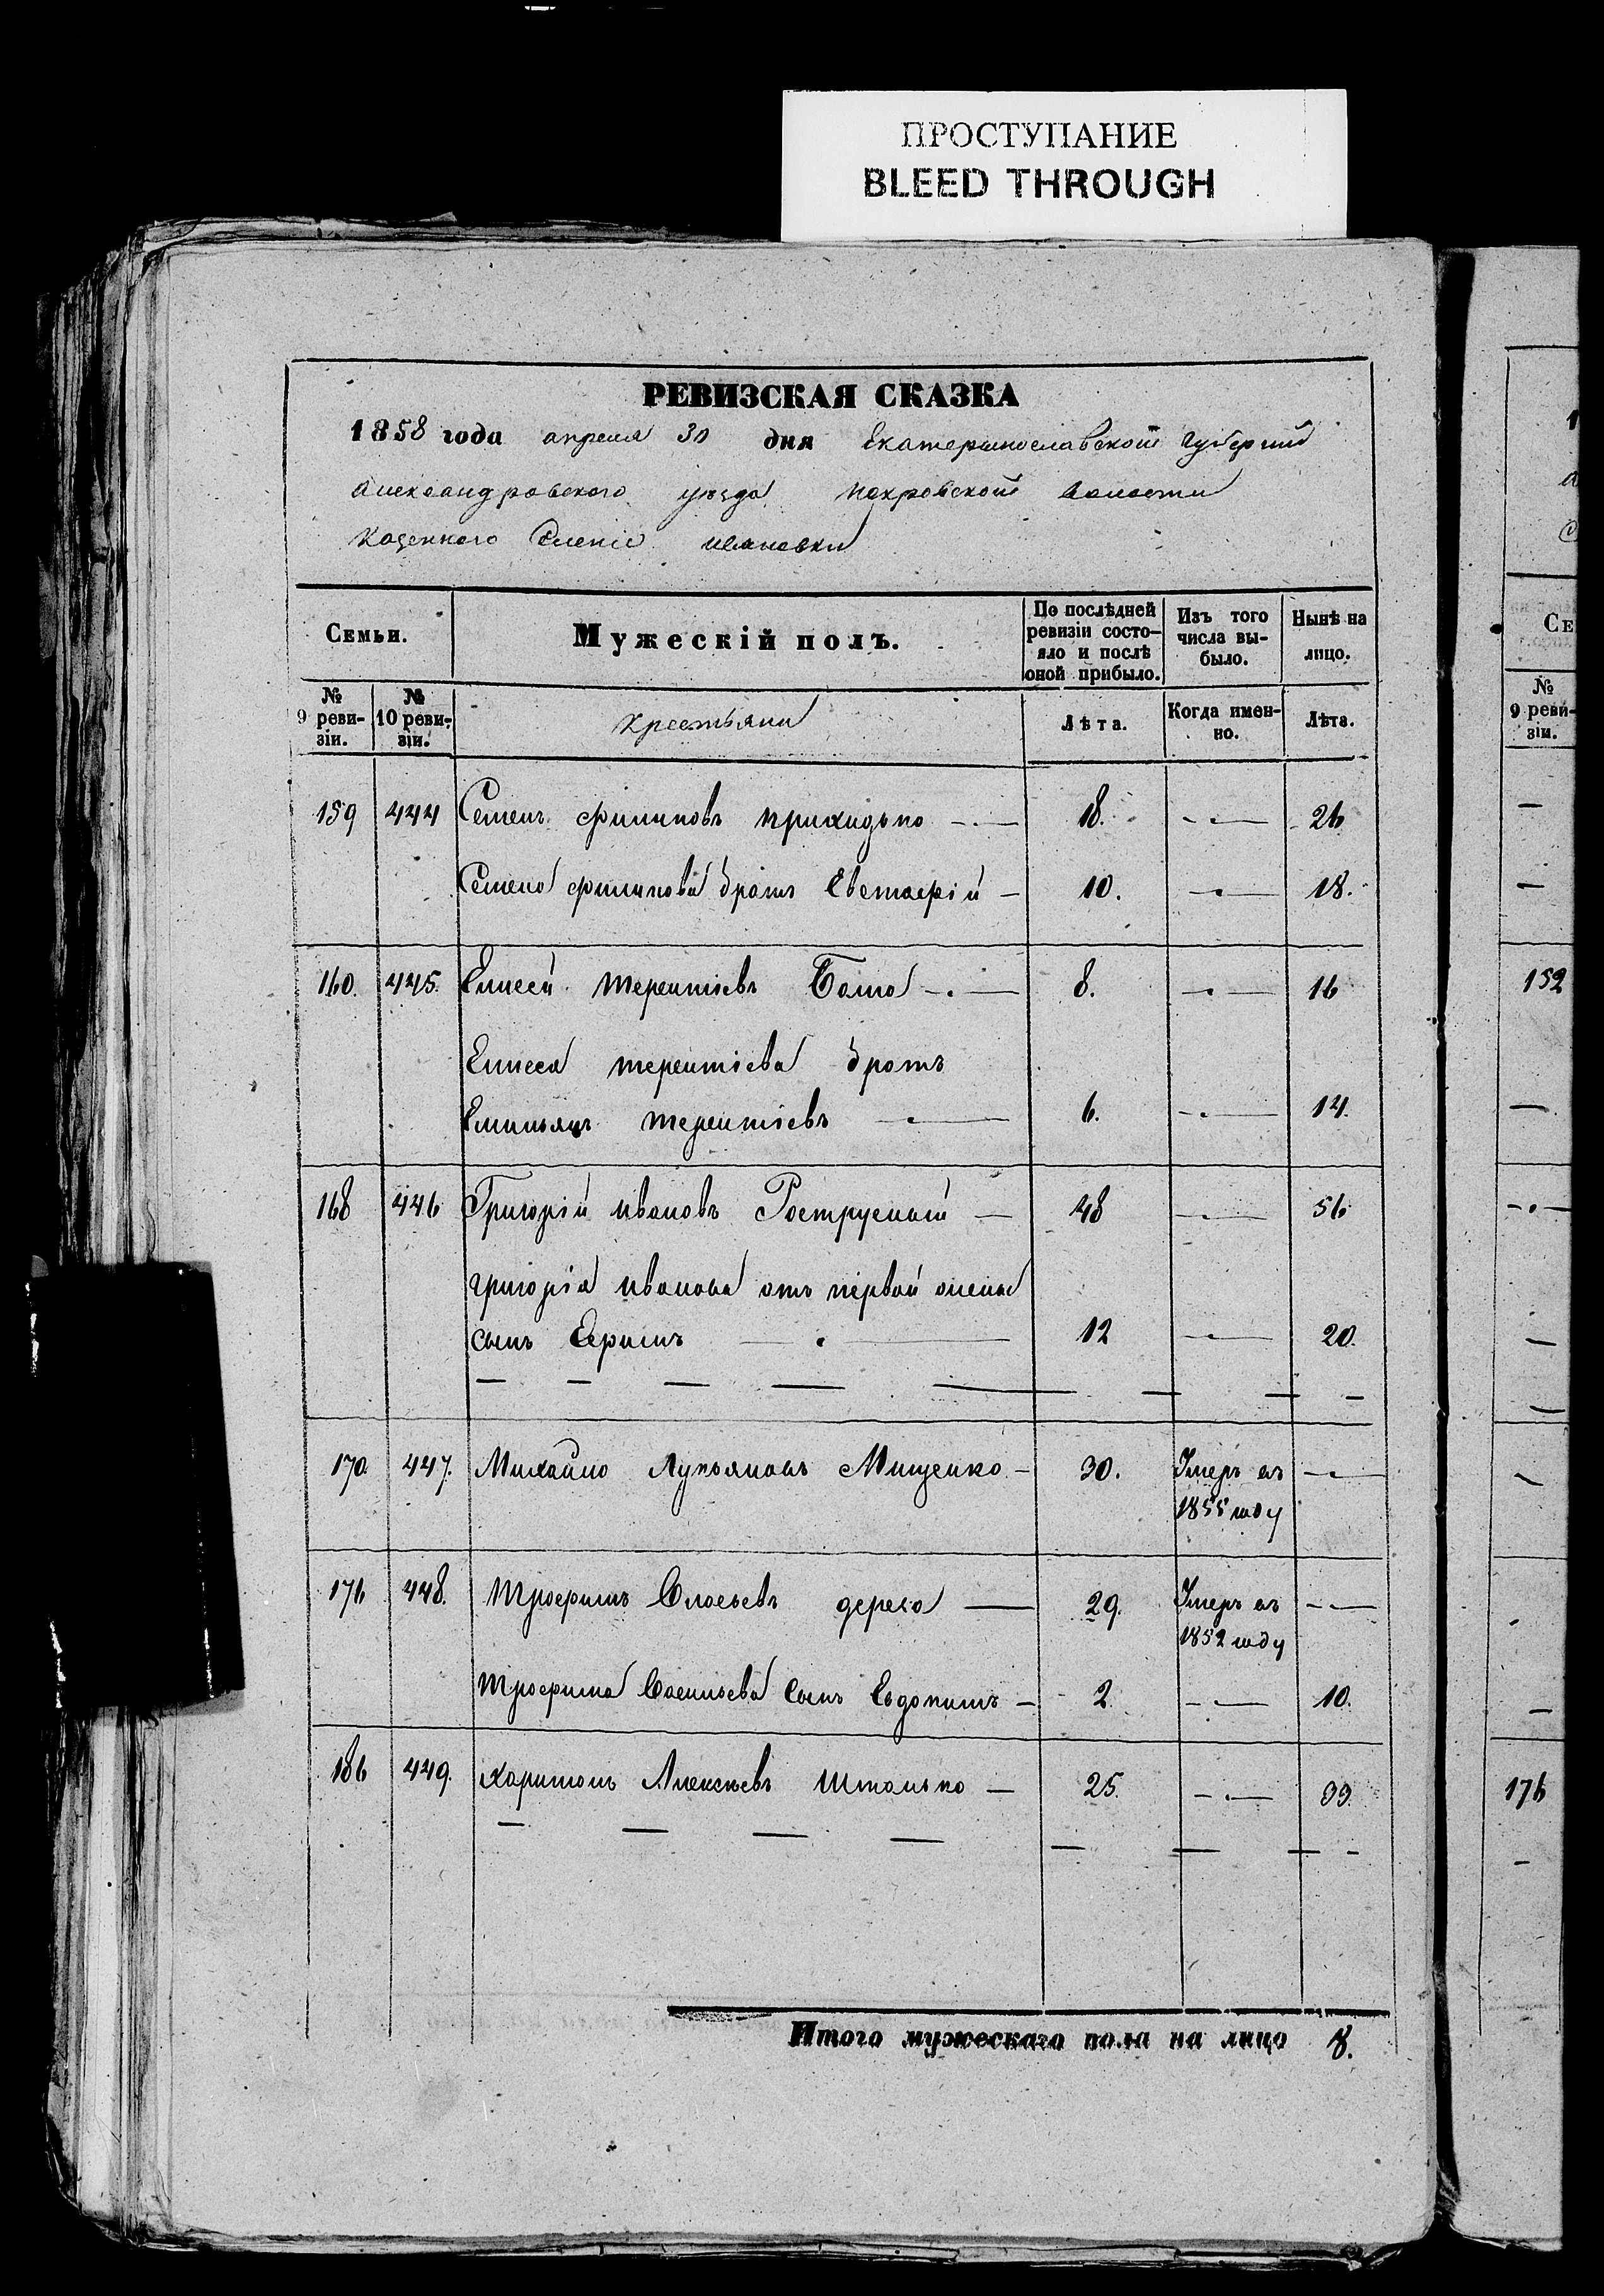 ПРОСТУПАНИЕ
BLEED THROUGH
РЕВИЗСКАЯ СКАЗКА
1858 года апреля 30 дня Екатеринославской Губернии
Александровского уезда Покровской Волости
Казенного Селенiя Ивановки
Семьи.
Мужескій полъ.
По послѣдней ревизіи состо-
яло и послѣ
оной прибыло.
Изъ того
числа вы-
было.
Нынѣ на
лицо.
№
9 реви-
зіи.
№
10 реви-
зіи.
Крестьяни
Лѣта.
Когда имен-
но.
Лѣта.
159 444 Семенъ Филиповъ Прихидько 18. 26
Семена Филипова братъ Евстафій 10. 18.
160. 445. Елисей Терентіевъ 8. 16
Елисея Терентіева братъ
Емильянъ Терентіевъ 6. 14.
168 446 Григорій Ивановъ 48 56
Григорія Иванова отъ первой жены
сынъ Ефимъ 12 20.
170. 447. Михайло Лукьяновъ Мищенко 30. Умеръ въ
1855 году
176 448. Трофимъ дерека 29. Умеръ въ
1852 году
Трофима Васильева сынъ Евдокимъ 2. 10.
186 449. Харитонъ Алексѣевъ Шталько 25. 33.
Итого мужескаго пола на лицо 8.
1
С
СЕ
№
9 реви-
зіи.
152
176